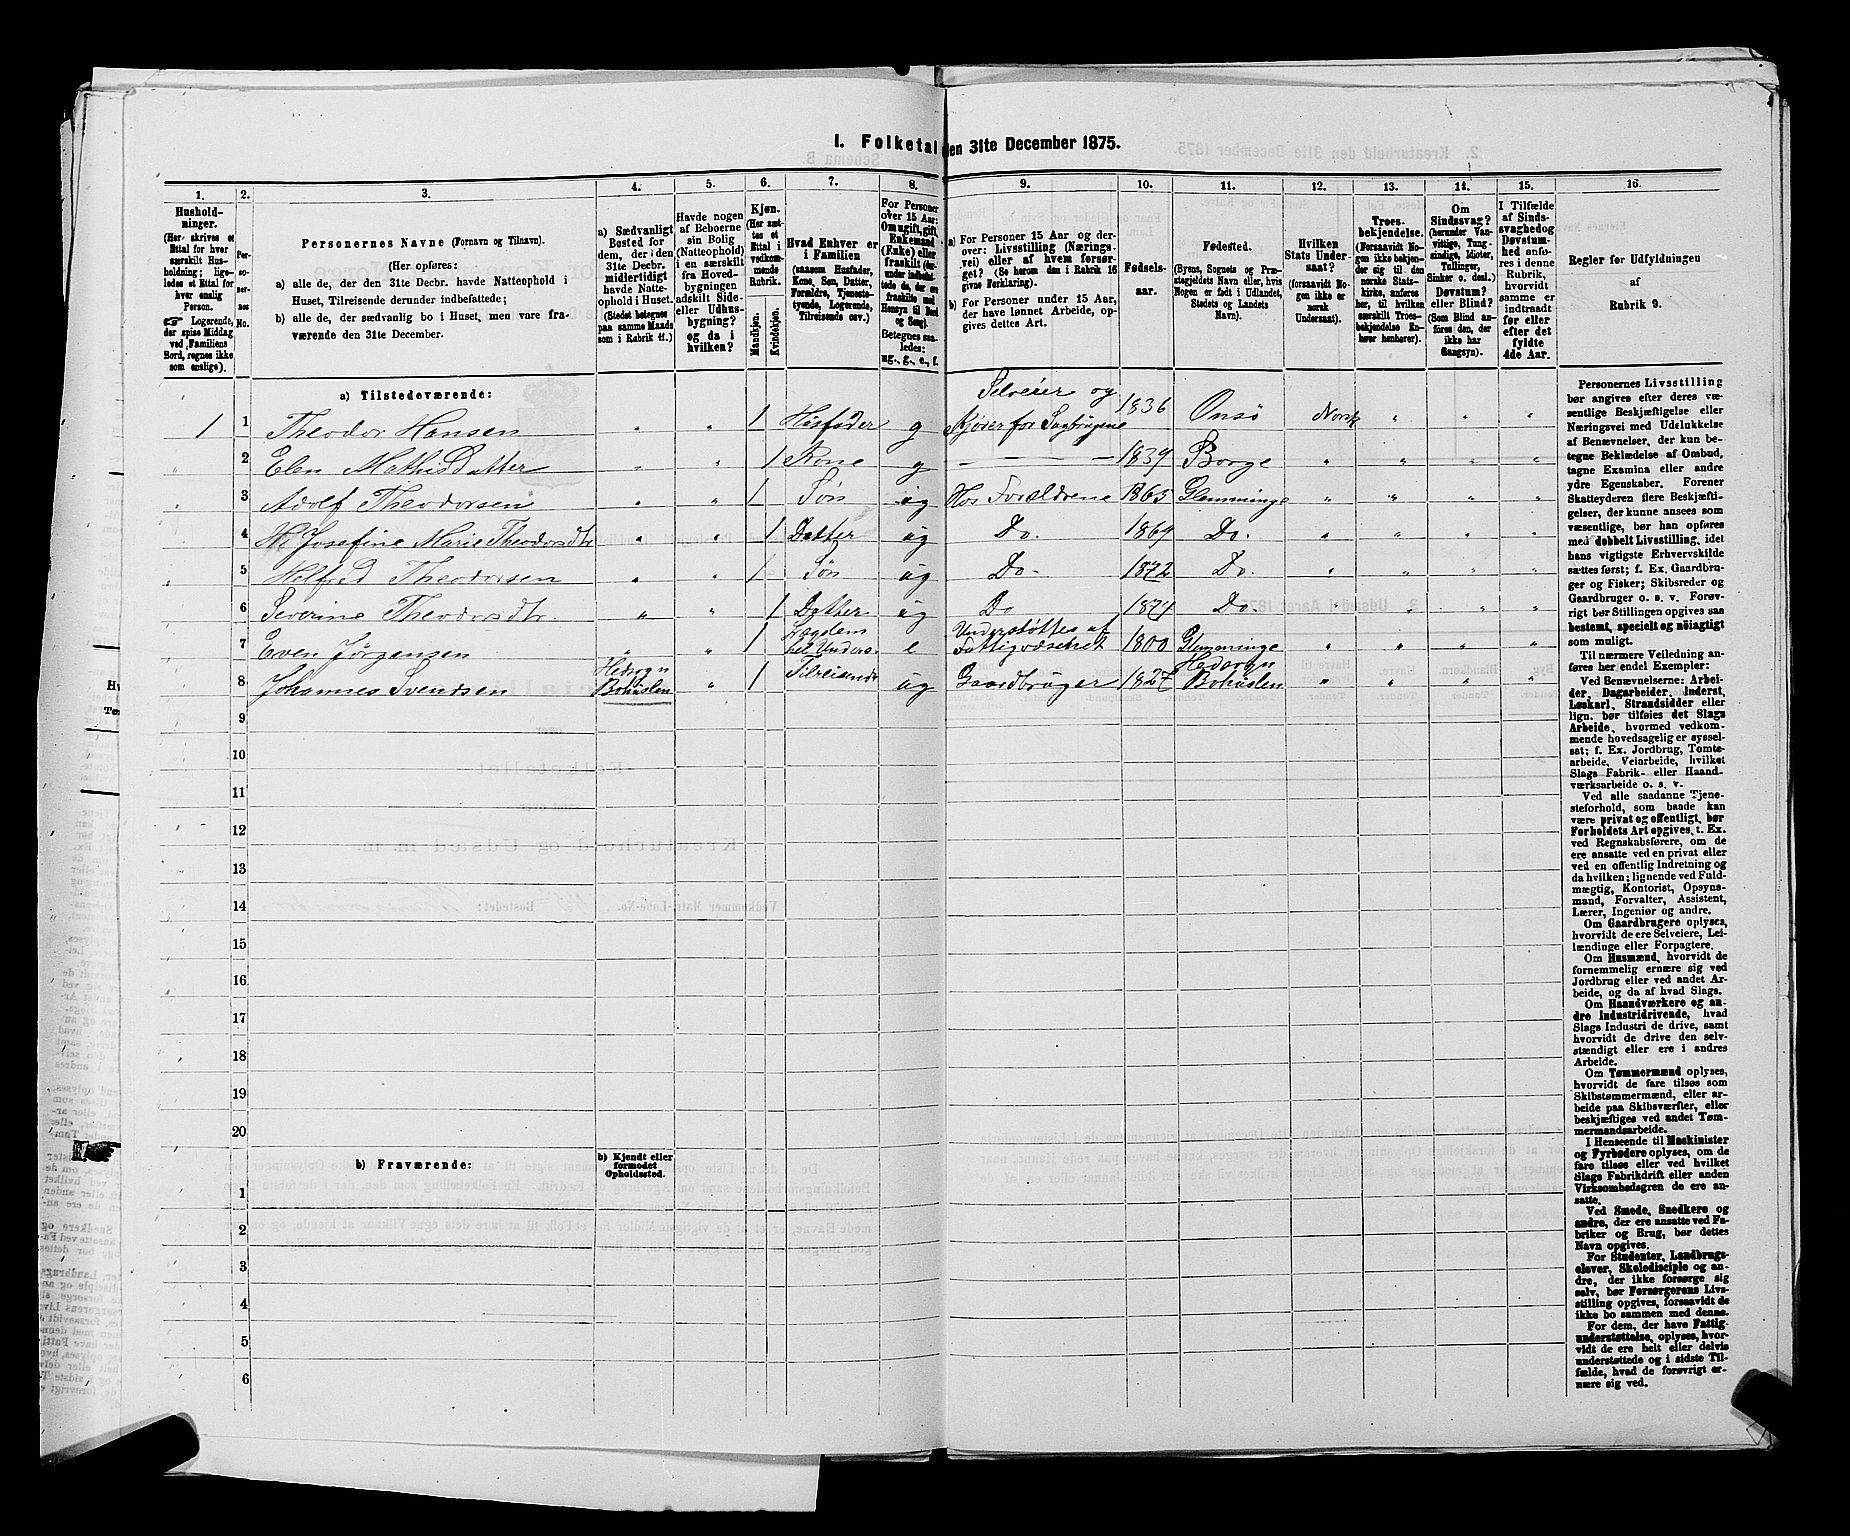 I. Folketal den 31te December 1875.
1. 2. 3. 4. 5. 6. 7. 8. 9. 10. 11. 12. 13. 14. 15. 16.
Hushold-
ninger.
(Her skrives et
Ettal for hver
særskilt Hus-
holdning; lige-
ledes et Ettal for
hver enslig
Person.
☞ Logerende,
der spise Middag
ved Familiens
Bord, regnes ikke
som enslige).
Per-
so-
ner-
nes
No.
Personernes Navne (Fornavn og Tilnavn).
(Her opføres:
a) alle de, der den 31te Decbr. havde Natteophold i
Huset, Tilreisende derunder indbefattede;
b) alle de, der sædvanlig bo i Huset, men vare fra-
værende den 31te December.
a) Sædvanligt
Bosted for
dem, der i den
31te Decbr.
midlertidigt
havde Natte-
ophold i Huset.
(Stedet betegnes
paa samme Maade
som i Rubrik 11.)
Havde nogen
af Beboerne
sin Bolig
(Natteophold)
i en særskilt
fra Hoved-
bygningen
adskilt Side-
eller Udhus-
bygning?
og da i
hvilken?
Kjøn.
(Her sæt-
tes et
Ettal i
vedkom-
mende
Rubrik.
Mandkjøn.
Kvindekjøn.
Hvad Enhver er
i Familien
(saasom Husfader,
Kone, Søn, Datter,
Forældre, Tjeneste-
tyende, Logerende,
Tilreisende osv.)
For Personer
over 15 Aar:
Om ugift, gift,
Enkemand
(Enke) eller
fraskilt
og Seng).
Betegnes saa-
ledes:
ug., g., e., f.
a) For Personer 15 Aar og der-
over: Livsstilling (Nærings-
vei) eller af hvem forsør-
get? (Se herom den i Rubrik 16
givne Forklaring).
b) For Personer under 15 Aar,
der have lønnet Arbeide, op-
gives dettes Art.
Fødsels-
aar.
Fødested.
(Byens, Sognets og Præ-
stegjeldets Navn eller, hvis
Nogen er født i Udlandet,
Stedets og Landets
Navn).
Hvilken
Stats Under-
saat?
(forsaavidt No-
gen ikke er
norsk
Undersaat).
Troes-
bekjendelse.
(Forsaavidt No-
gen ikke bekjen-
der sig til den
norske Stats-
kirke, anføres
her, til hvilken
særskilt Troes-
bekjendelse En-
hver henhører).
Om
Sindssvag?
(herunder Van-
vittige, Tung-
sindige, Idioter,
Tullinger,
Sinker o. desl.)
Døvstum?
eller Blind?
(Som Blind an-
føres den, der
ikke har
Gangsyn).
I Tilfælde
af Sinds-
svaghed og
Døvstum-
hed anfø-
res i denne
Rubrik,
hvorvidt
samme er
indtraadt
før eller
efter det
fyldte
4de Aar.
Regler for Udfyldningen
af
Rubrik 9.
a) Tilstedeværende:
1 1 Theodor Hansen 1 Husfader g Selveier og Kjører for Sagbrugene 1836 Onsö Norsk
2 Elen Mathisdatter 1 Kone g 1839 Borge
3 Adolf Theodorsen 1 Søn ug Hos Forældrene 1865 Glemminge
4 Josefine Marie Theodorsdtr 1 Datter ug Do. 1869 Do.
5 Helfred Theodorsen 1 Søn ug Do. 1872 Do.
6 Severine Theodorsdtr. 1 Datter ug Do 1874 Do
7 Even Jørgensen 1 e Understøttes af 1800 Glemminge
8 Johannes Svendsen Bohuslen 1 Tilreisende ug Gaardbruger 1827 Bohuslen
9
10
11
12
13
14
15
16
17
18
19
20
b) Fraværende:
b) Kjendt eller
formodet
Opholdssted.
1
2
3
4
5
6
Personernes Livsstilling
bør angives efter deres væ-
sentlige Beskjæftigelse eller
Næringsvei med Udelukkelse
af Benævnelser, der kun be-
tegne Beklædelse af Ombud,
tagne Examina eller andre
ydre Egenskaber. Forener
Skatteyderen flere Beskjæfti-
gelser, der kunne ansees som
væsentlige, bør han opføres
med dobbelt Livsstilling, idet
hans vigtigste Erhvervskilde
sættes først; f. Ex. Gaardbru-
ger og Fisker; Skibsreder og
Gaardbruger o. s. v. Forøv-
rigt bør Stillingen opgives saa
bestemt, specielt og nöiagtigt
som muligt.
Til nærmere Veiledning an-
føres her endel Exempler:
Ved Benævnelserne: Arbei-
der, Dagarbeider, Inderst,
Løskarl, Strandsidder eller
lign. bør tilføies det Slags
Arbeide, hvormed vedkom-
mende hovedsagelig er syssel-
sat; f. Ex. Jordbrug, Tomte-
arbeide, Veiarbeide, hvilket
Slags Fabrik- eller Haand-
værksarbeide o. s. v.
Ved alle saadanne Tjene-
steforhold, som baade kan
være privat og offentligt, bør
Forholdets Art opgives, t. Ex.
ved Regnskabsførere, om de
ere ansatte ved en privat eller
ved en offentlig Indretning og
da hvilken; lignende ved Fuld-
mægtig, Kontorist, Opsyns-
mand, Forvalter, Assistent,
Lærer, Ingeniør og andre.
Om Gaardbrugere oplyses,
hvorvidt de ere Selveiere, Lei-
lændinge eller Forpagtere.
Om Husmænd, hvorvidt de
fornemmelig ernære sig ved
Jordbrug eller ved andet Ar-
beide, og da af hvad Slags.
Om Haandværkere og an-
dre Industridrivende, hvad
Slags Industri de drive, samt
hvorvidt de drive den selv-
stændigt eller ere i andres
Arbeide.
Om Tømmermænd oplyses,
hvorvidt de fare tilsøs som
Skibstømmermænd, eller ar-
beide paa Skibsværfter, eller
beskjæftiges ved andet Tøm-
mermandsarbeide.
I Henseende til Maskinister
og Fyrbødere oplyses, om de
fare tilsøs eller ved hvilket
Slags Fabrikdrift eller anden
Virksomhedsgren de ere an-
satte.
Ved Smede, Snedkere og
andre, der ere ansatte ved Fa-
briker og Brug, bør dettes
Navn opgives.
For Studenter, Landbrugs-
elever, Skoledisciple og an-
dre, der ikke forsørge sig
selv, bør Forsørgerens Livs-
stilling opgives, forsaavidt de
ikke bo sammen med denne.
For dem, der have Fattig-
understøttelse, oplyses, hvor-
vidt de ere helt eller delvis
understøttede og i sidste Til-
fælde, hvad de forøvrigt er-
nære sig ved.